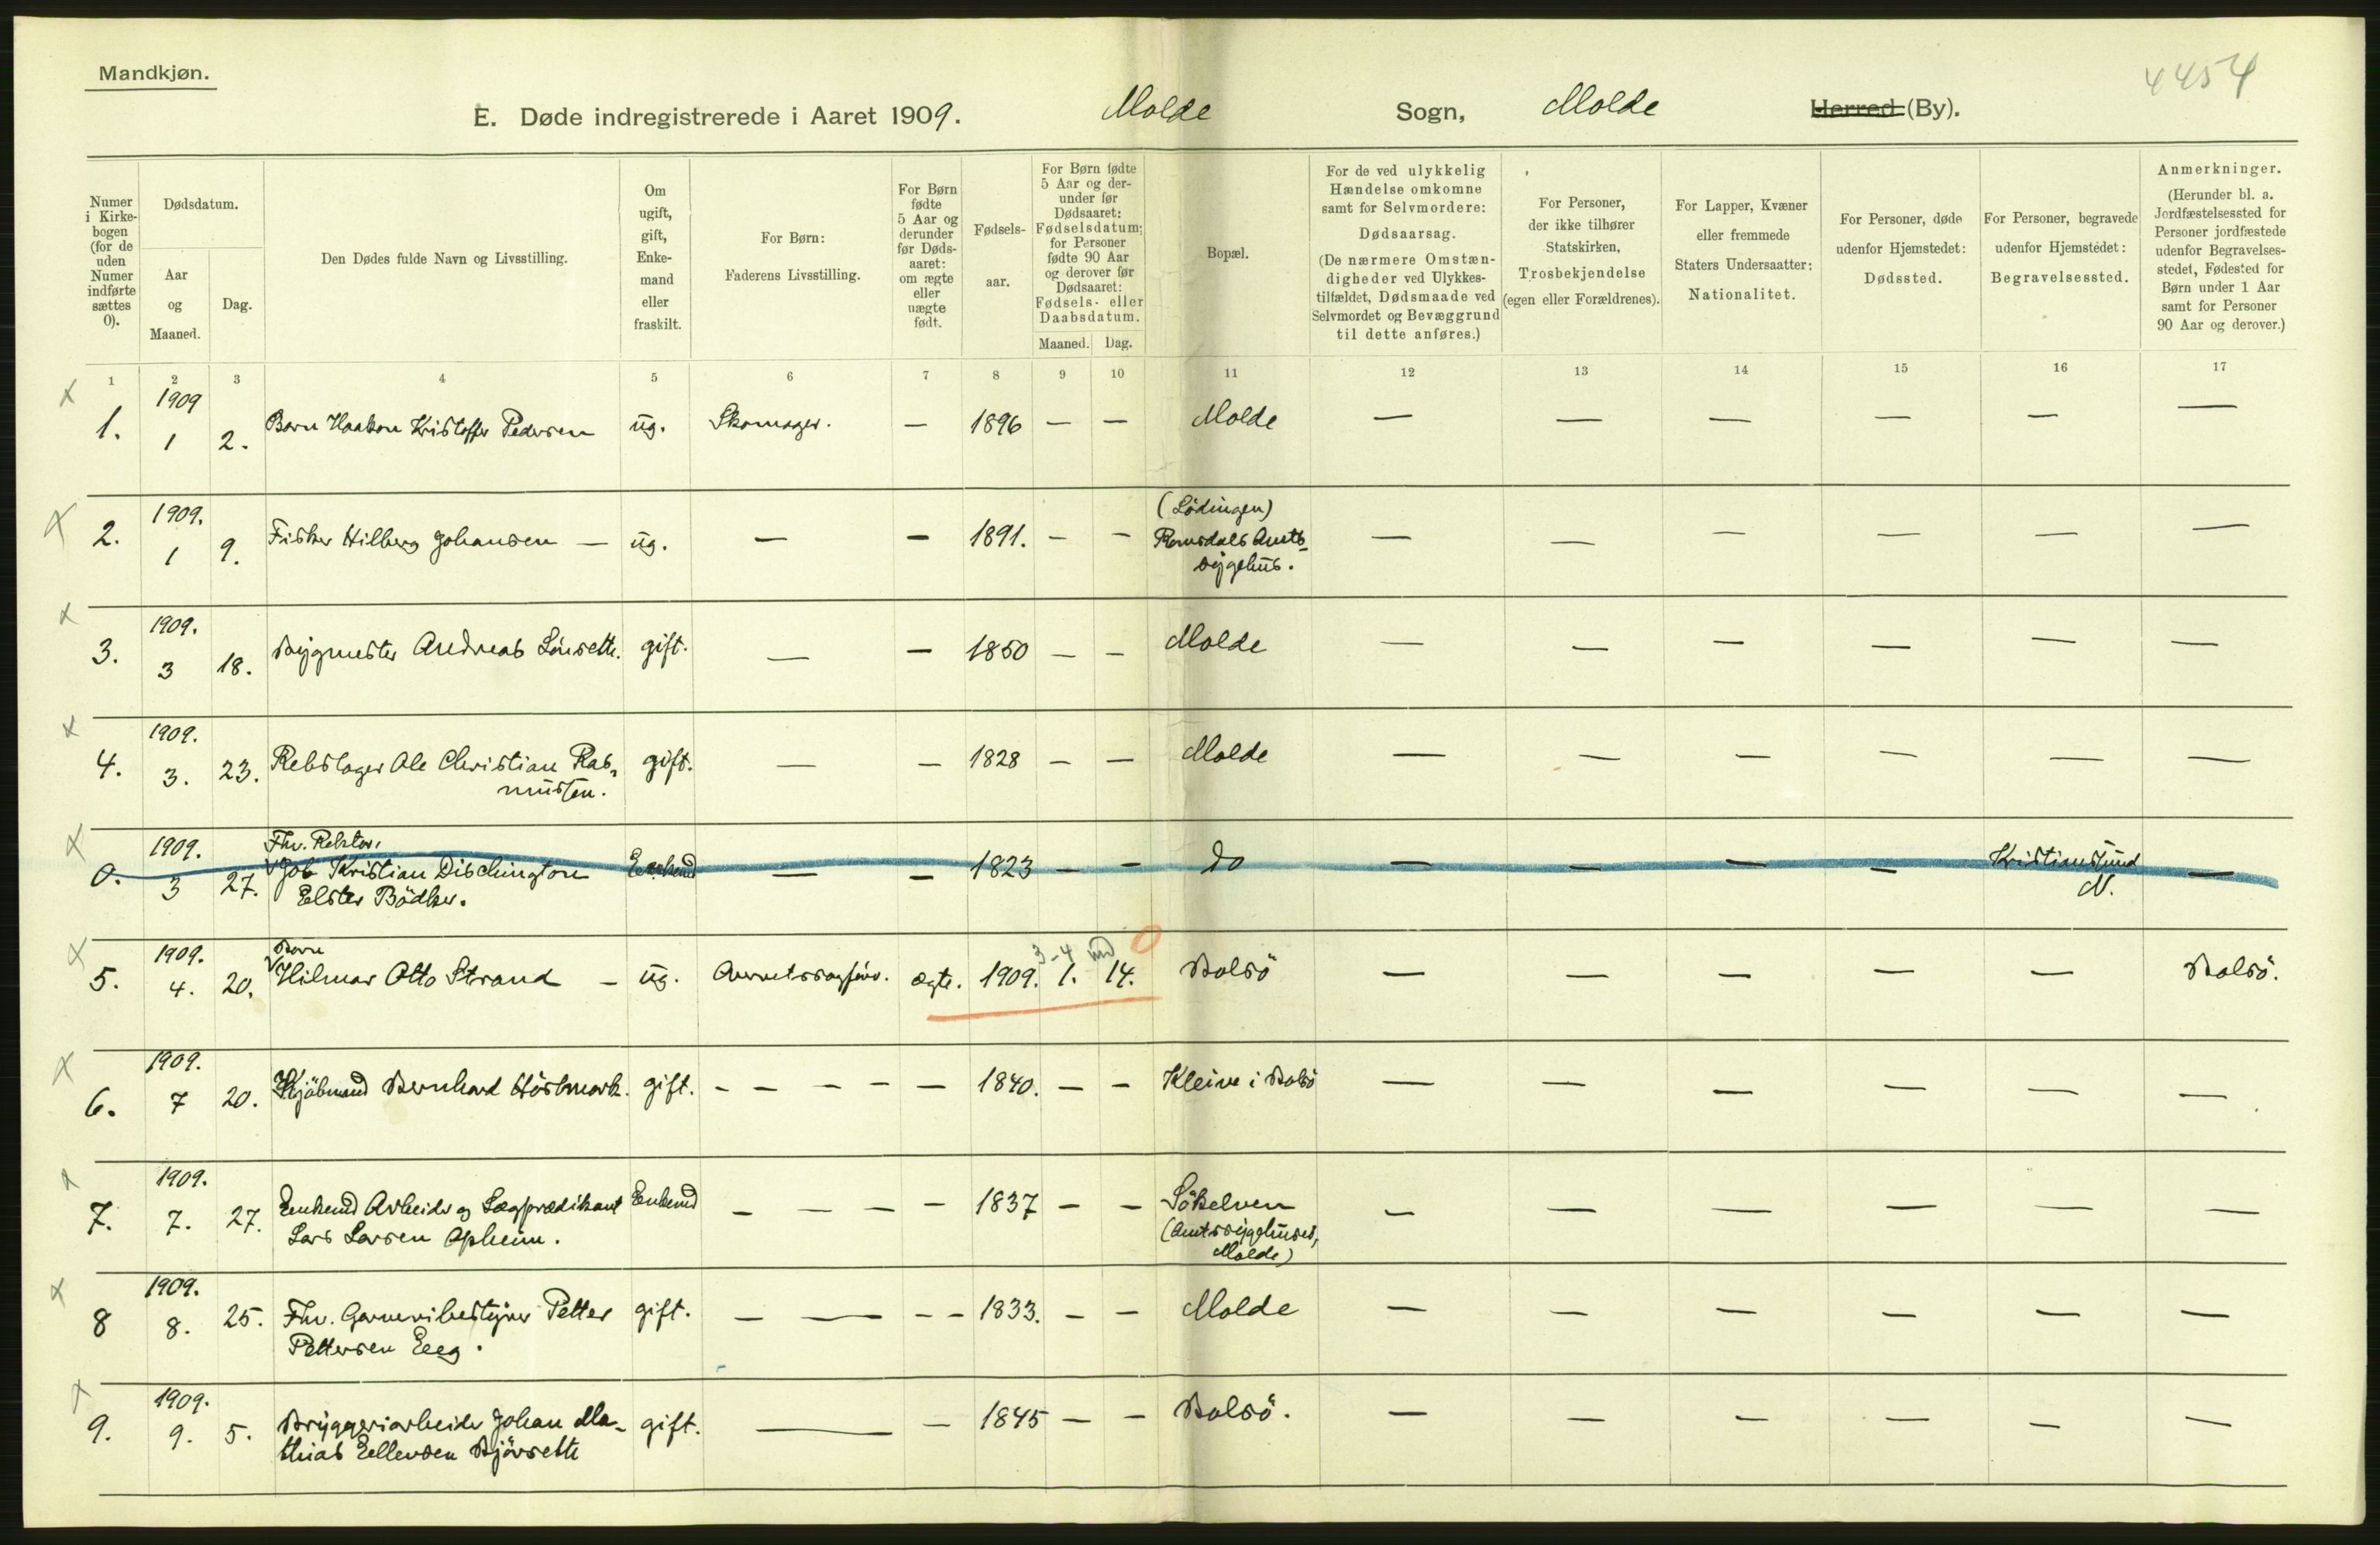 Mandkjøn.
4454
E. Døde indregistrerede i Aaret 1909. Molde Sogn, Molde Herred (By).
Numer i Kirkebogen (for de uden Numer indførte sættes 0).
Dødsdatum.
Aar og Maaned.
Dag.
Den Dødes fulde Navn og Livsstilling.
Om ugift, gift, Enkemand eller fraskilt.
For Børn: Faderens Livsstilling.
For Børn fødte 5 Aar og derunder før Dødsaaret: om ægte eller uægte født.
Fødselsaar.
For Børn fødte 5 Aar og derunder før Dødsaaret: Fødselsdatum; for Personer fødte 90 Aar og derover før Dødsaaret: Fødsels- eller Daabsdatum.
Maaned. Dag.
Bopæl.
For de ved ulykkelig Hændelse omkomne samt for Selvmordere: Dødsaarsag. (De nærmere Omstændigheder ved Ulykkestilfældet, Dødsmaade ved Selvmordet og Bevæggrund til dette anføres.)
For Personer, der ikke tilhører Statskirken, Trosbekjendelse (egen eller Forældrenes).
For Lapper, Kvæner eller fremmede Staters Undersaatter: Nationalitet.
For Personer, døde udenfor Hjemstedet: Dødssted.
For Personer, begravede udenfor Hjemstedet: Begravelsessted.
Anmerkninger. (Herunder bl. a. Jordfæstelsessted for Personer jordfæstede udenfor Begravelsesstedet, Fødested for Børn under 1 Aar samt for Personer 90 Aar og derover.)
1 2 3 4 5 6 7 8 9 10 11 12 13 14 15 16 17
x 1. 1909 1 2. Barn Haakon Kristoffer Pedersen ug. Skomager. — 1896 — — Molde — — — — — —
x 2. 1909. 1 9. Fisker Hilberg Johansen — ug. — — 1891. - - (Lödingen) Romsdals Amts sygehus. — — — — — —
x 3. 1909. 3 18. Bygmester Andreas Lönsetth. gift. — — 1850 — — Molde — — — — — —
x 4. 1909. 3. 23. Rebslager Ole Christian Rasmussen. gift. — — 1828 — — Molde — — — — — —
x 0. 1909. 3 27. Fhv. Rektor. Job Kristian Dischington Elster Bödker. Enkemd — — 1823 — — do — — — — Kristiansund N. —
x 5. 1909. 4. 20. Barn Hilmar Otto Strand — ug. ægte. 1909. 1. 14. 3-4 md 0 Bolsö — — — — — Bolsö.
x 6. 1909. 7 20. Kjöbmand Bernhard Hösmark. gift. - - - - — 1840. — — Kleive i Bolsö — — — — — —
x 7. 1909. 7. 27. Enkemd Arbeider og Lægprædikant Lars Larsen Apheim. Enkemd — — — — — 1837 — — Sökelven (Amtssygehuset, Molde) — — — — — —
x 8 1909. 8. 25. Fhv. Garveribestyrer Petter Pettersen Eeg. gift. — — - - 1833. — — Molde — — — — — —
x 9. 1909. 9. 5. Bryggeriarbeider Johan Mathias Ellensen Bjørsetth gift. — — 1845 — — Bolsö. — — — — — —